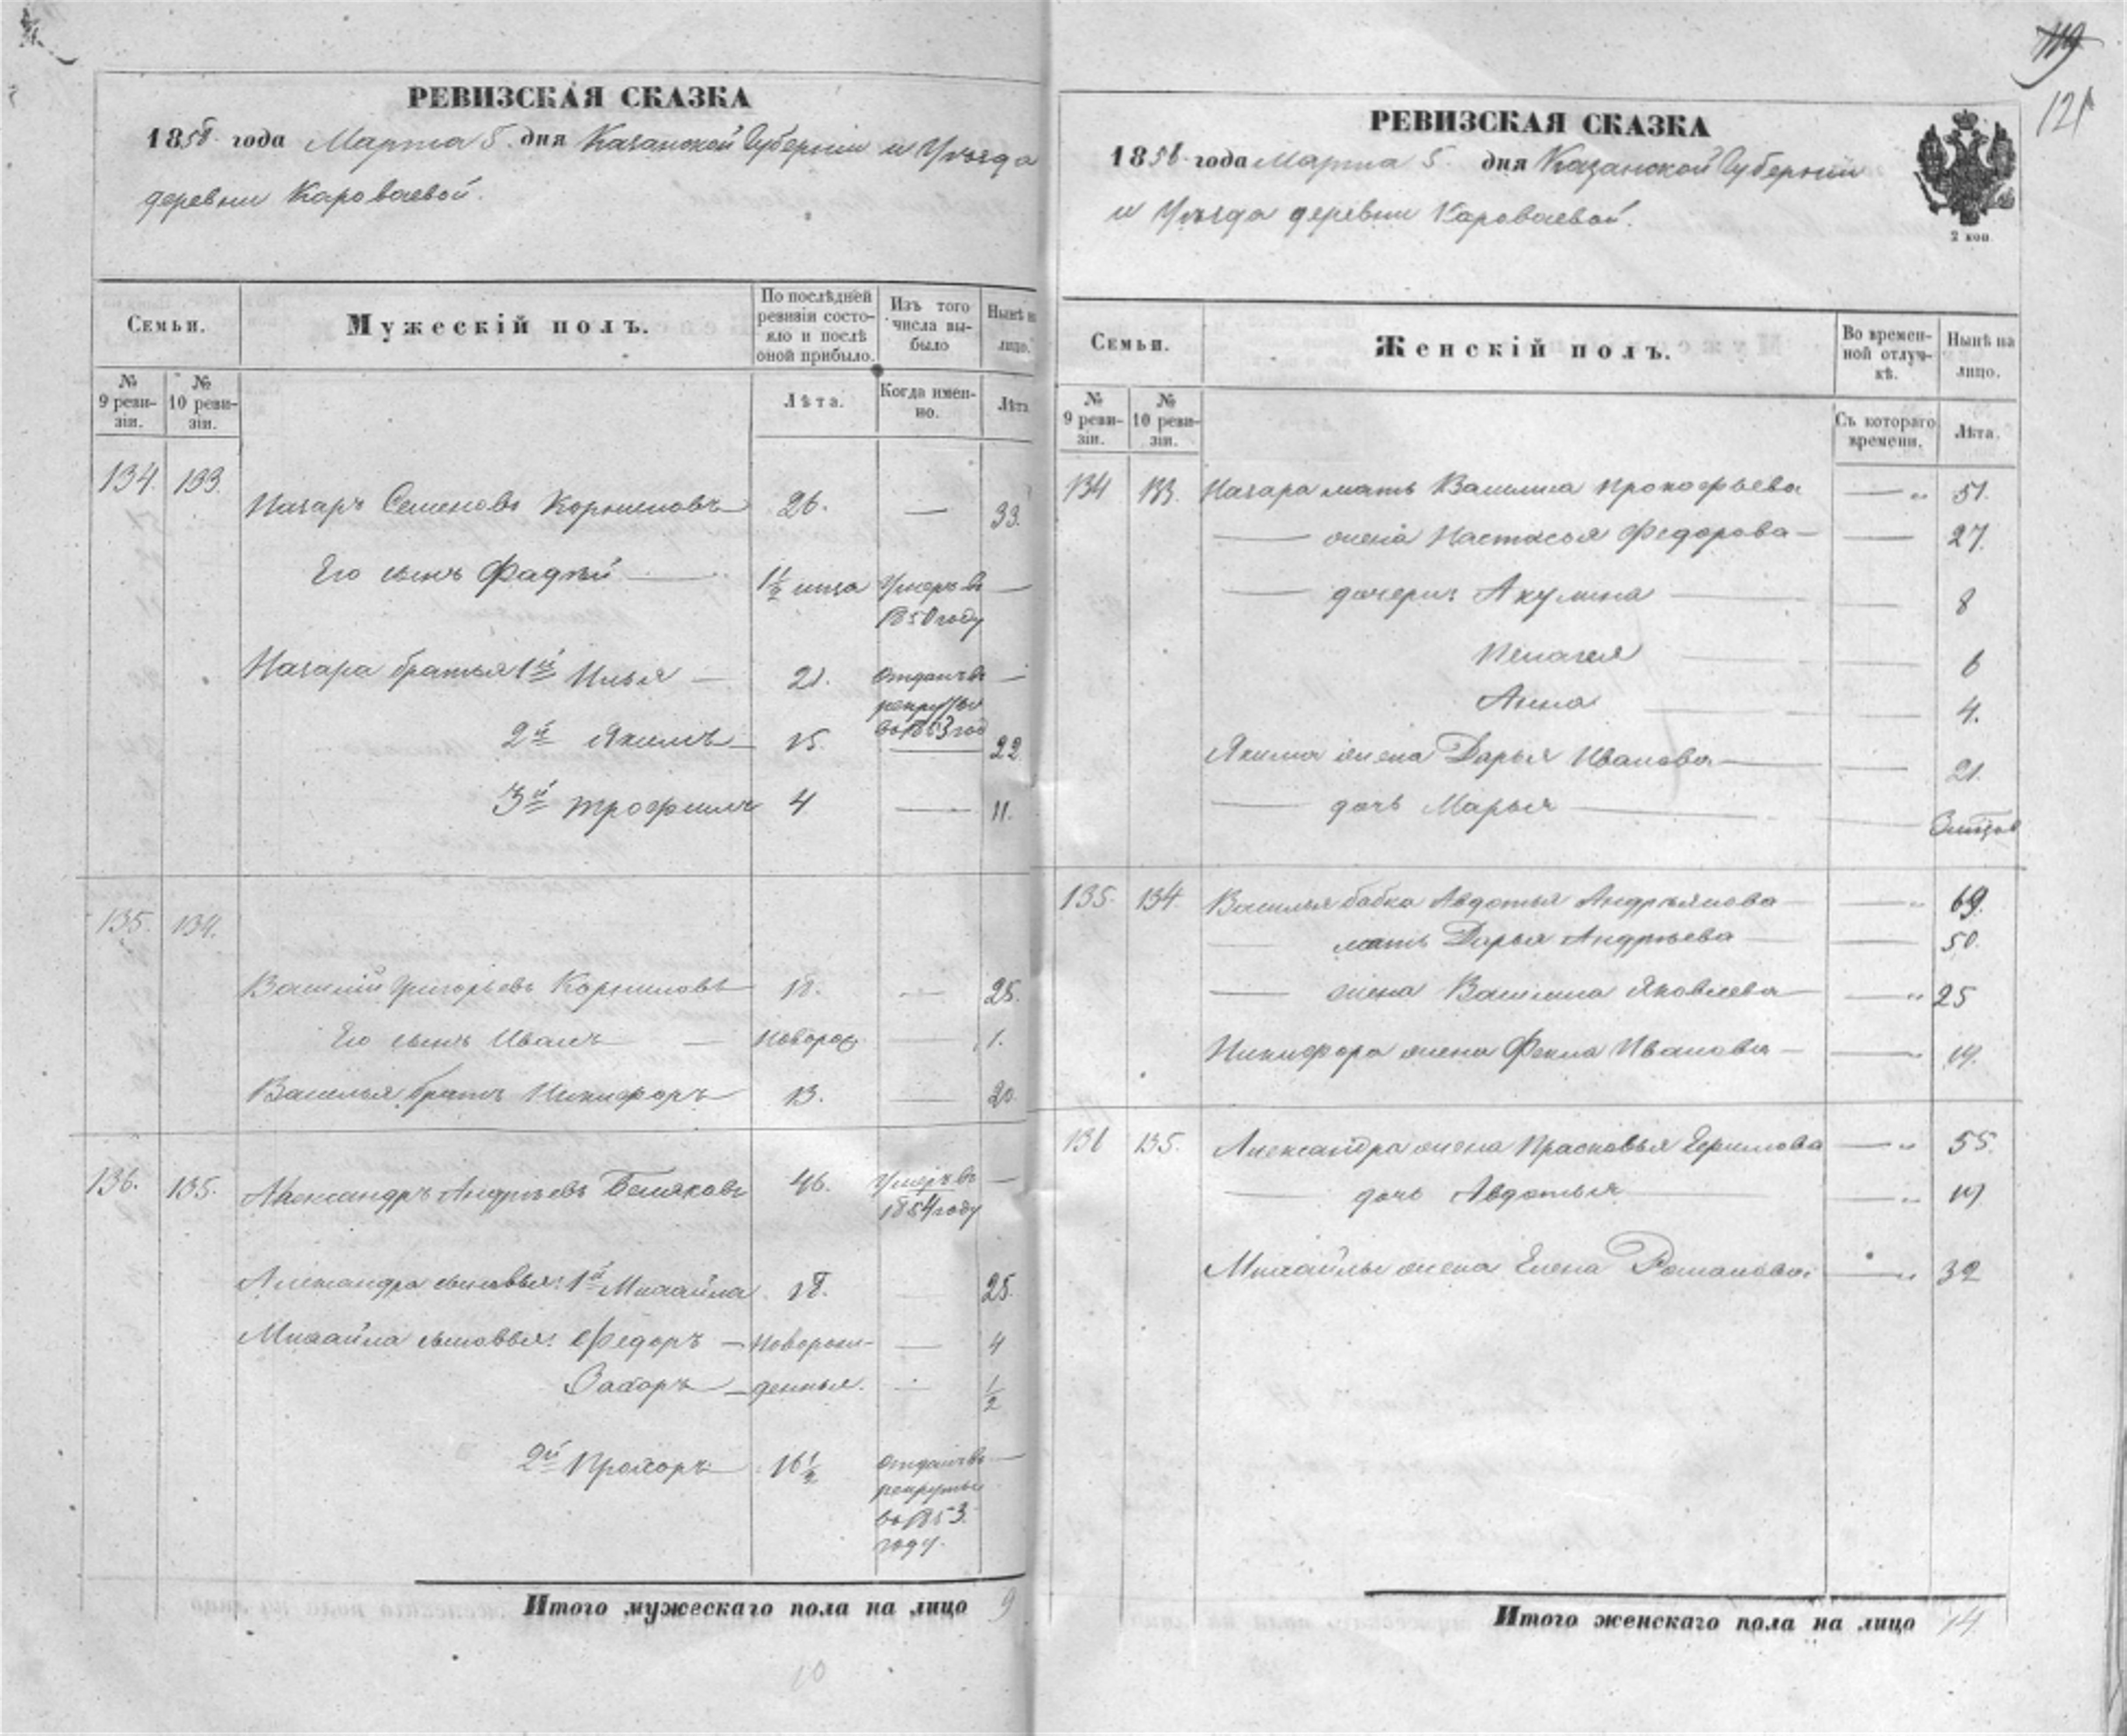 РЕВИЗСКАЯ СКАЗКА
1858 года Марта 5. дня Казанской Губерніи и Уѣзда
деревни Караваевой.
Семьи.
Мужескій полъ.
По послѣдней ревизіи состояло и послѣ оной прибыло.
Изъ того числа выбыло
Нынѣ на лицо.
№ 9 ревизіи.
№ 10 ревизіи.
Лѣта.
Когда именно.
Лѣта
134. 133.
Назаръ Семеновъ Корниловъ 26. — 33.
Его сынъ Фадѣй — 1 1/2 мца Умеръ въ —
1850 году
Назара братья 1й Илья — 21. Отданъ въ —
рекруты
въ 1853 год
2й Якимъ — 15. — 22
3й Трофимъ 4 — 11.
135. 134.
Василій Григорьевъ Корниловъ 18. — 25.
Его сынъ Иванъ — Новорож — 1.
Василья братъ Никифоръ 13. — 20.
136. 135.
Александръ Андреевъ Беляковъ 46. Умеръ въ —
1854 году
Александра сыновья: 1й Михайла 18. — 25.
Михайла сыновья: Федоръ — Новорож- — 4
Захаръ — денныя. — 1/2
2й Прохоръ 16 1/2 Отданъ въ —
рекруты
въ 1853
году.
Итого мужескаго пола на лицо 9
10
119
121
РЕВИЗСКАЯ СКАЗКА
1858 года Марта 5. дня Казанской Губерніи
и Уѣзда деревни Караваевой.
2 коп.
Семьи.
Женскій полъ.
Во временной отлучкѣ.
Нынѣ на лицо.
№ 9 ревизіи.
№ 10 ревизіи.
Съ котораго времени.
Лѣта.
134 133. Назара мать Василиса Прокофьева — 51.
— жена Настасья Федорова — — 27.
— дочери: Акулина — — 8
Пелагея — — 6
Анна — — 4.
Якима жена Дарья Иванова — — 21.
— дочь Марья —
135. 134. Василья бабка Авдотья Андреянова — — 69.
— мать Дарья Андреева — — 50.
— жена Василиса Яковлева — — 25
Никифора жена Фекла Иванова — — 19.
136 135. Александра жена Прасковья Ефимова — 55.
— дочь Авдотья — — 19.
Михайлы жена Елена Романова — 32
Итого женскаго пола на лицо 14